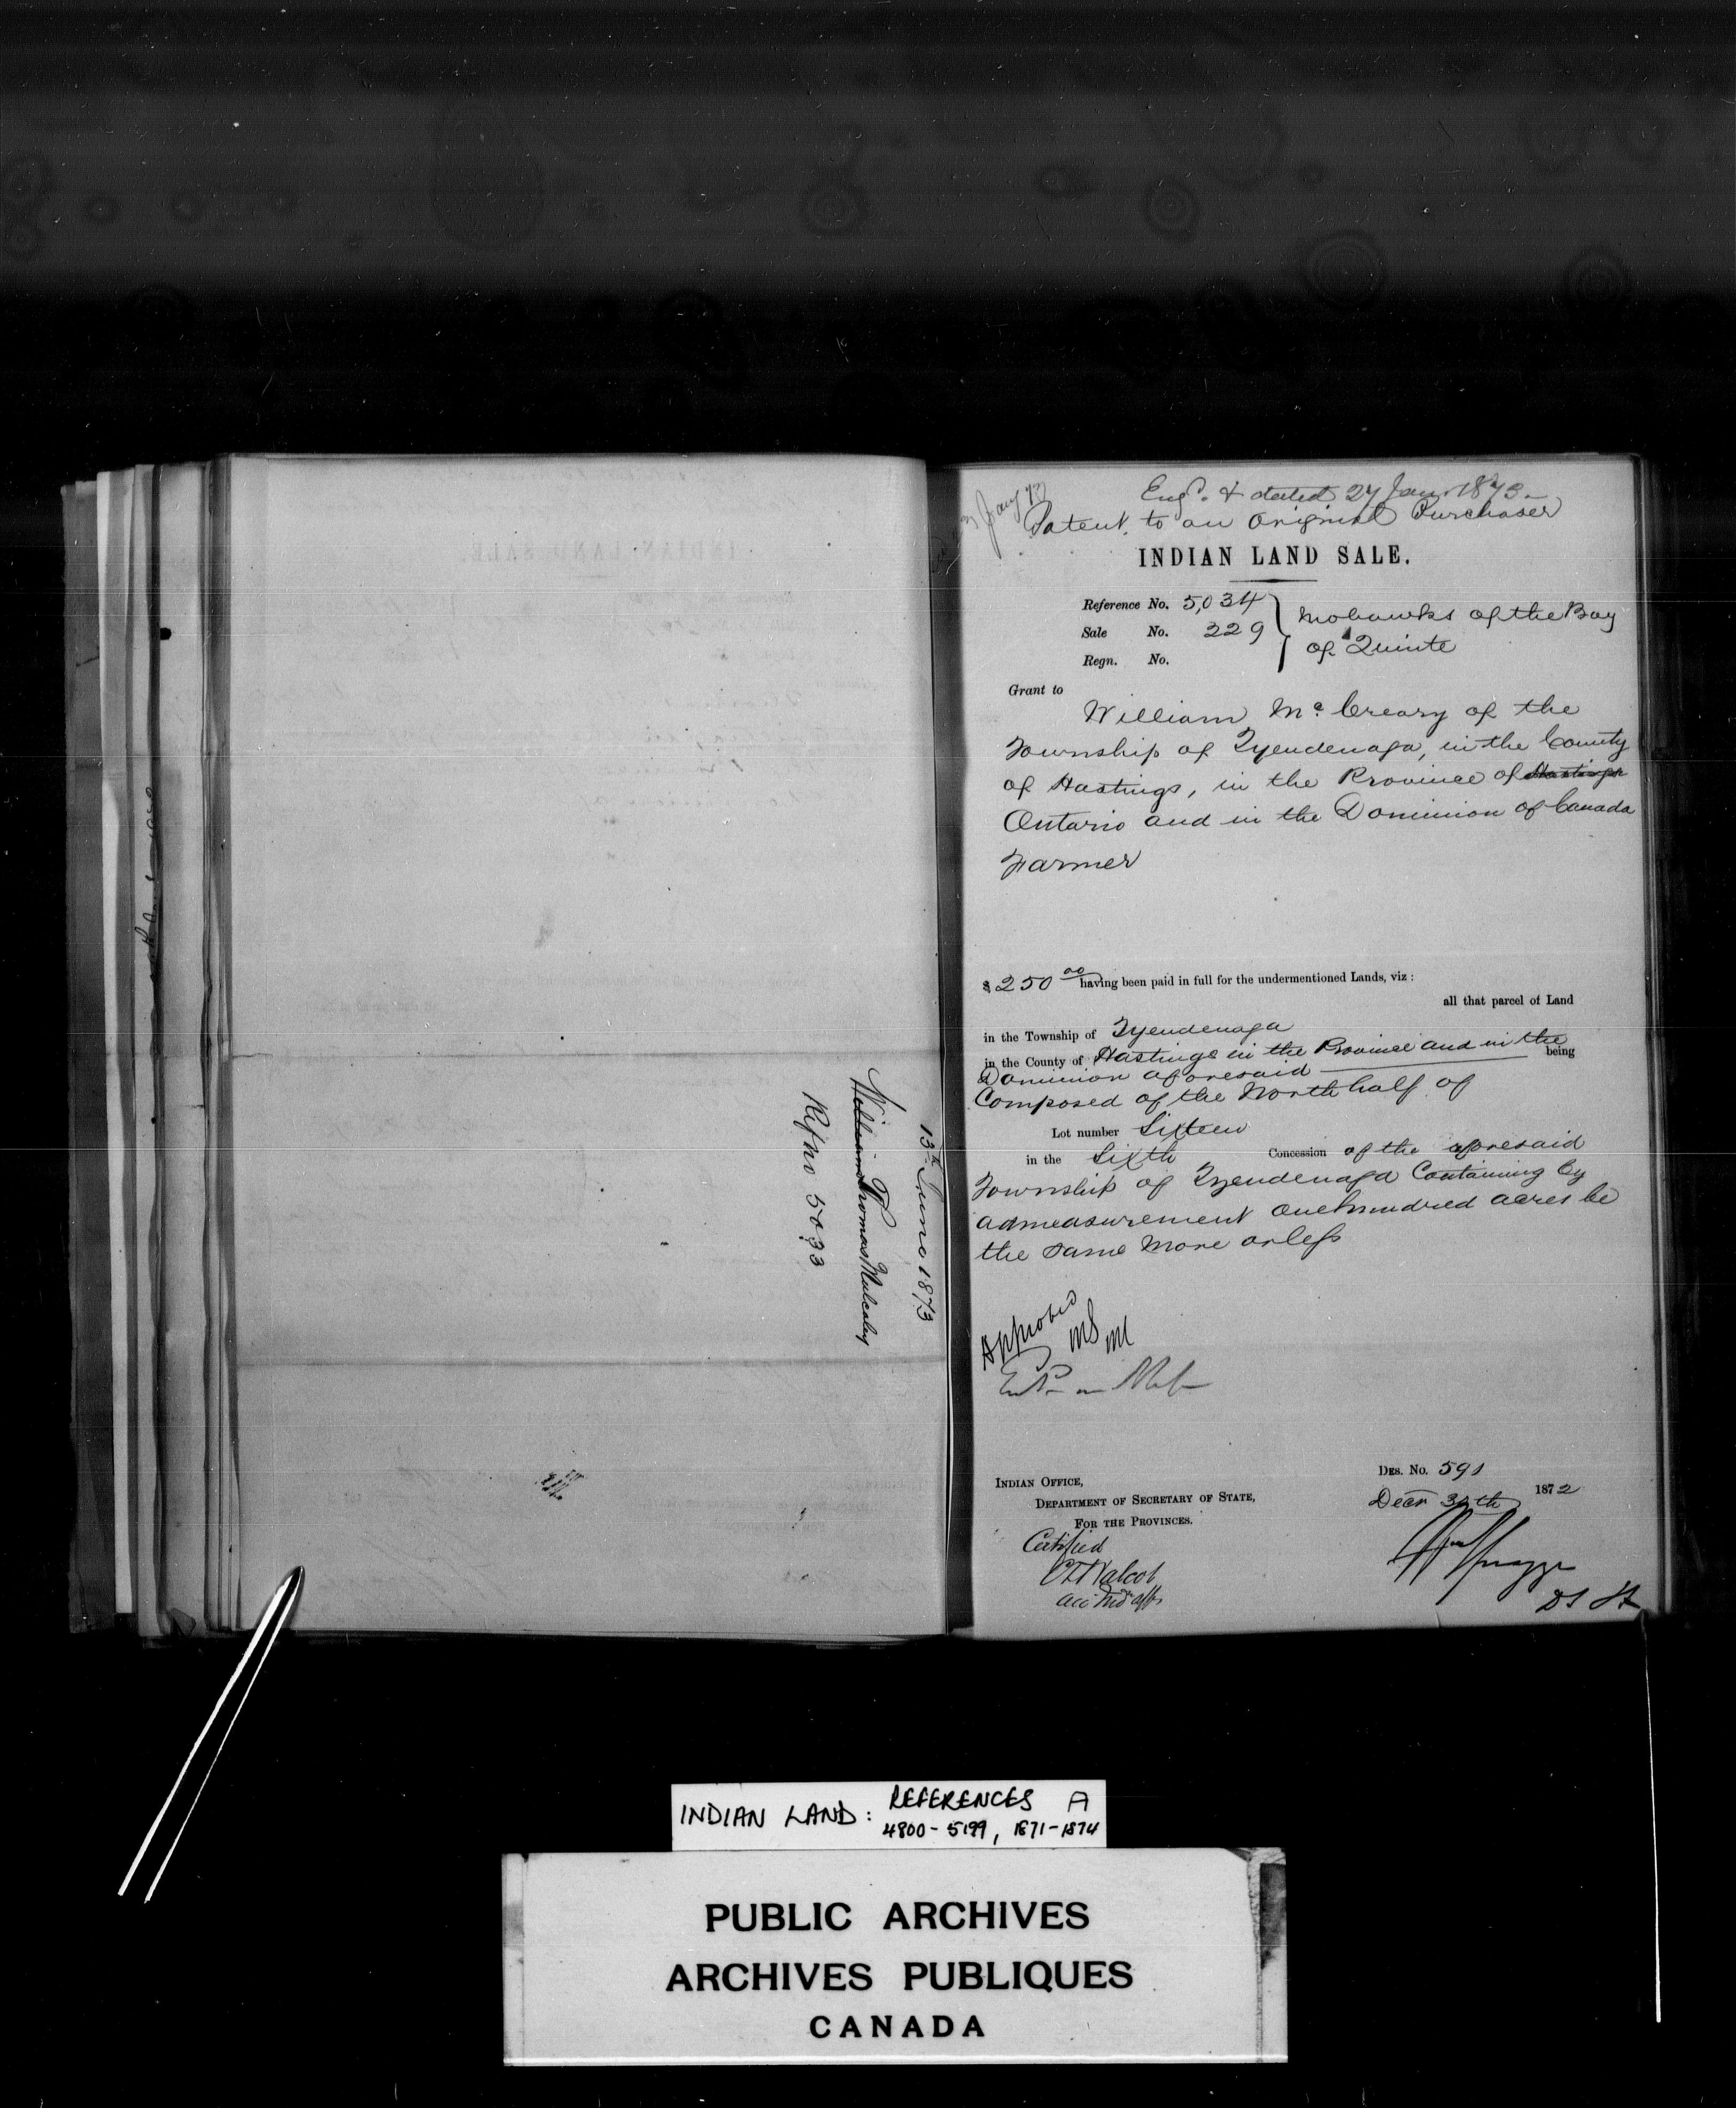 13th June 1873
William Thomas Mulcahy
Ref no 5033
Jany 73
Engd. & dated 27 Jan. 1873
Patent to an original Purchaser
INDIAN LAND SALE.
Reference No. 5,034
Sale No. 229
Regn. No.
Mohawks of the Bay
of Quinte
Grant to
William Mc Creary of the
Township of Tyendenaga, in the County
of Hastings, in the Province of Hastings
Ontario and in the Dominion of Canada
Farmer
$250 00 having been paid in full for the undermentioned Lands, viz :
all that parcel of Land
in the Township of Tyendenaga
in the County of Hastings in the Province and in the being
Dominion aforesaid
Composed of the North half of
Lot number Sixteen
in the Sixth Concession of the aforesaid
Township of Tyendenaga Containing by
admeasurement one hundred acres be
the same more or less
Approved
INDIAN OFFICE,
DEPARTMENT OF SECRETARY OF STATE,
FOR THE PROVINCES.
DES. No. 591
Decr 30th 1872
Certified
CTWalcot
acc Ind affs
INDIAN LAND: REFERENCES A
4800-5199, 1871-1874
PUBLIC ARCHIVES
ARCHIVES PUBLIQUES
CANADA